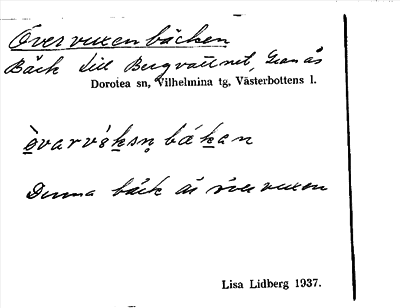 Övervuxen bäcken
Bäck till Bergvattnet, Granås
Dorotea sn, Vilhelmina tg, Västerbottens l.
Denna bäck är övervuxen
Lisa Lidberg 1937.